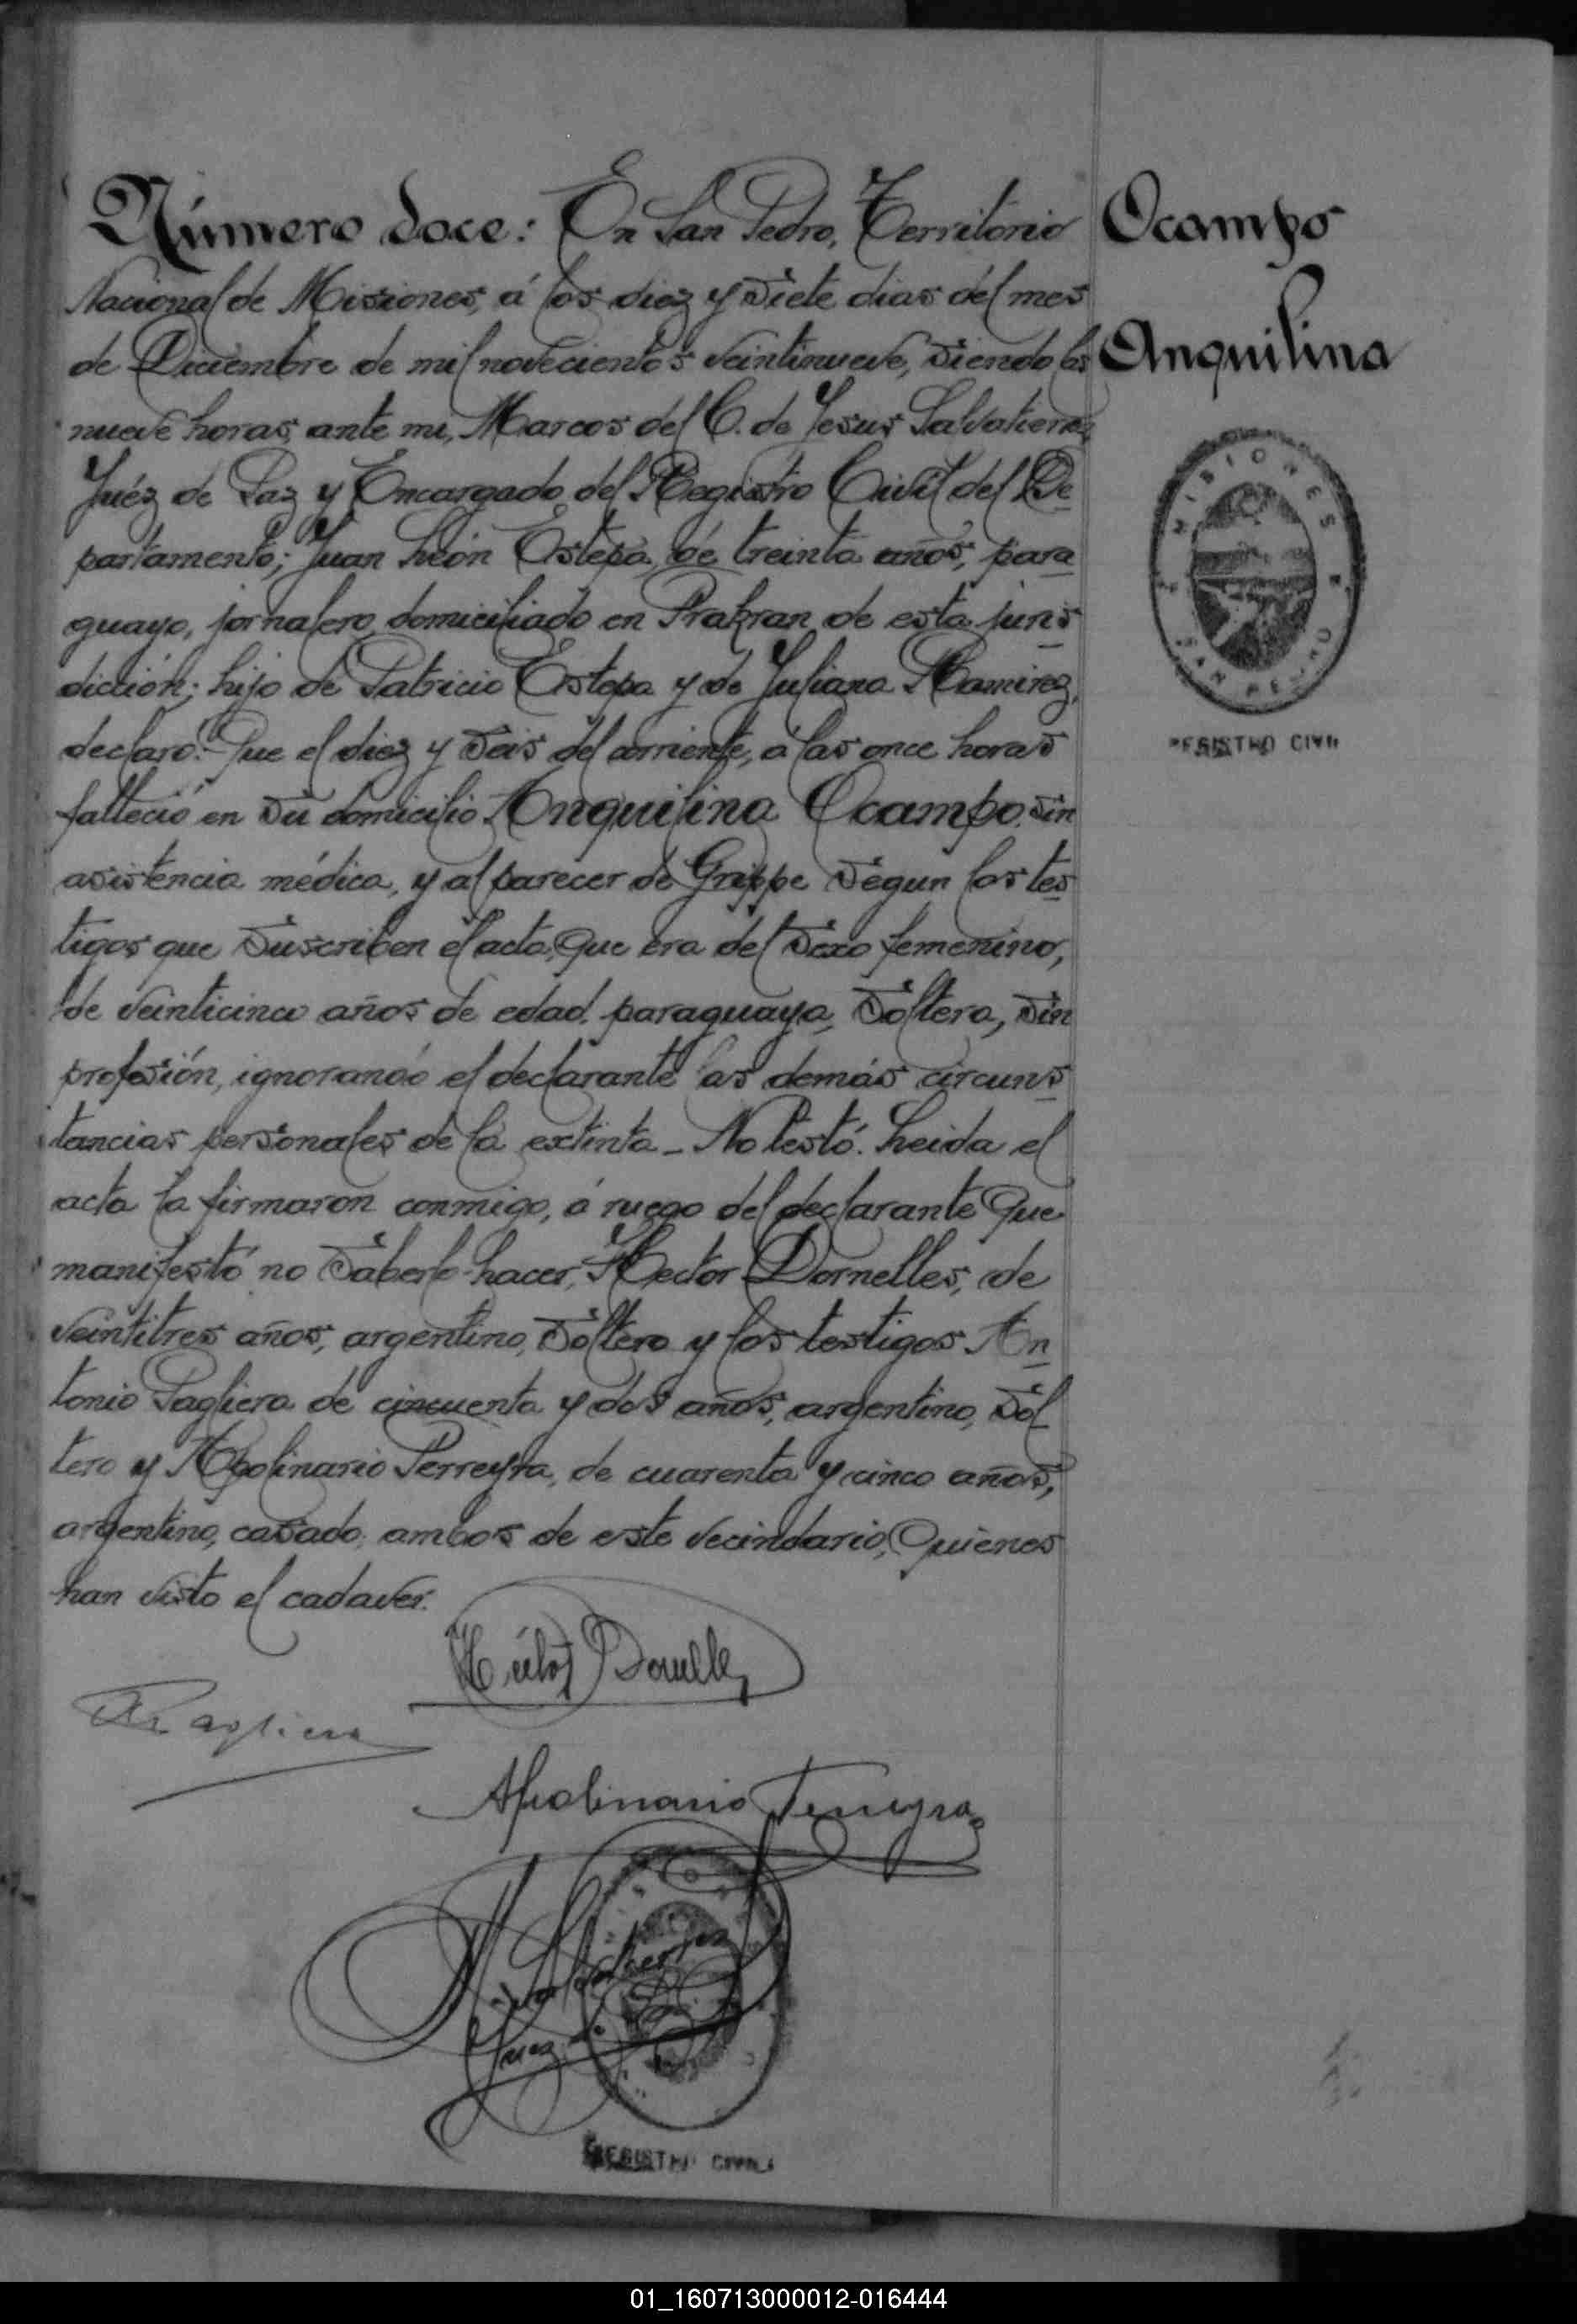 Número doce: En San Pedro, Territorio
Nacional de Misiones, á los diez y siete dias del mes
de Diciembre de mil novecientos veintinueve, siendo las
nueve horas, ante mi, Marcos del C. de Jesus Salvatierra,
Juéz de Paz y Encargado del Registro Civil del De
partamento; Juan León Estepa, de treinta años, para
guayo, jornalero, domiciliado en Prakran de esta juris
dicción; hijo de Patricio Estepa y de Juliana Ramirez,
declaró: Que el diez y seis del corriente, á las once horas
falleció en su domicilio Anquilina Ocampo, sin
asistencia médica, y al parecer de Grippe segun los tes
tigos que suscriben el acta, Que era del sexo femenino,
de veinticinco años de edad, paraguaya, soltera, sin
profesión, ignorando el declarante las demás circuns
tancias personales de la extinta - No testó. Leida el
acta la firmaron conmigo, á ruego del declarante Que
manifestó no saberlo hacer, Hector Dornelles, de
veintitres años, argentino, soltero y los testigos An
tonio Pagliera de cincuenta y dos años, argentino, sol
tero y Apolinario Perreyra, de cuarenta y cinco años,
argentino, casado, ambos de este vecindario, Quienes
han visto el cadaver.
Ocampo
Anquilina
MISIONES
SAN PEDRO
REGISTRO CIVIL
Héctor Dornelles
A Pagliera
Apolinario Ferreyra
M Salvatierra
Juez de Paz
REGISTRO CIVIL
01_160713000012-016444